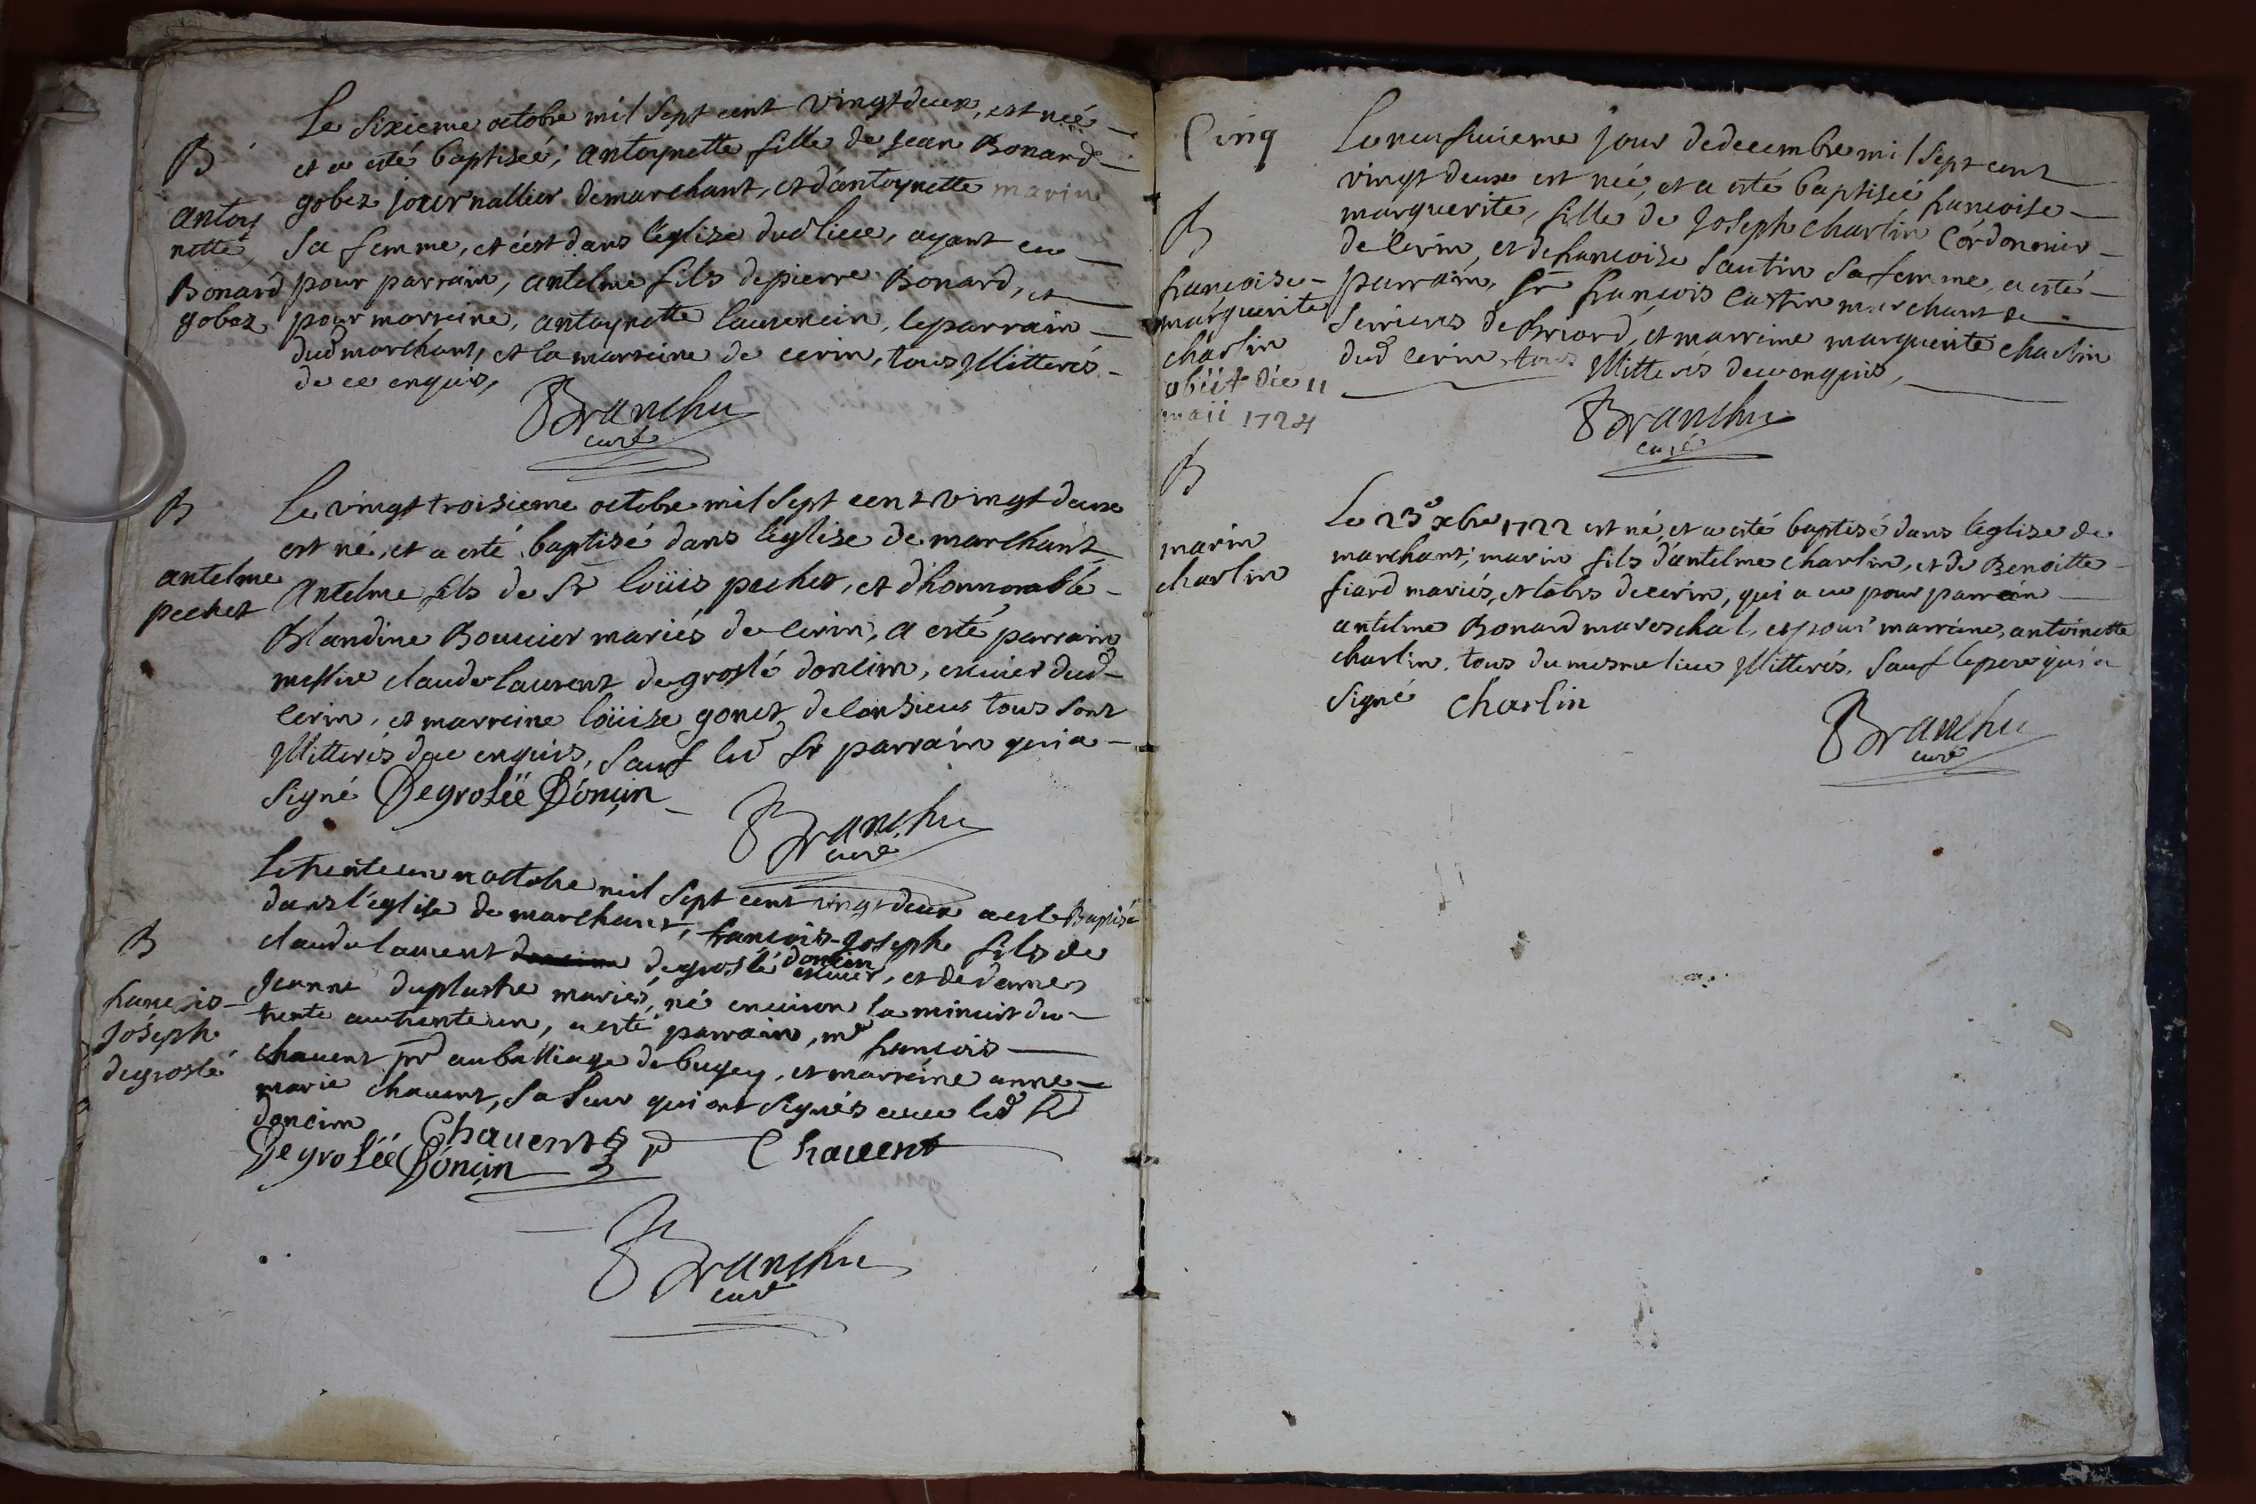 Le Sixieme octobre mil Sept cent vingt deux, est neé
B
et a esté baptiseé, antoynette fille de Jean Bonard
antoy
nette
Bonard
gobez
gobez journallier demarchant, et d'antoynette marin
sa femme, et c'est dans l'eglize dud lieu, ayant eu
pour parrain, antelme fils de pierre Bonard, et
pour marreine, antoynette laurencin, le parrain
dud marchant, et la marreine de cerin, tous Illitterés
de ce enquis,
Branchu
curé
B
antelme
pechet
Le vingt troisieme octobre mil Sept cent vingt deux
est né, et a esté baptisé dans l'eglize de marchant
Antelme fils de Sr loüis pechet, et d'honnorable
Blandine Bouuier mariés de cerin, a esté parrain
messire claude laurent de groslé doncim, escuier dud
cerin, et marreine loüize gonet de tous sont
Illitterés de ce enquis, sauf led Sr parrain qui a
Signé Degroleé Doncin
Branchu
curé
B
francois
Joseph
degroslé
Le trente un octobre mil Sept cent vingt deux a esté Baptisé
dans l'eglise de marchant, francois-Joseph fils de
claude laurent degroslé doncim escuier, et de dame
Jeanne duplastre mariés, né enuiron la minuit du
trente au trente un, a esté parrain, me francois
chauent pr au balliage de bugey, et marreine anne
marie chauent, Sa Seur qui ont Signés auec led Sr
doncim
Chauent
Chauent
Degroleé Doncin
Branchu
curé
Cinq
B
francoise
marguerite
charlin
obiit die 11
maii 1724
Le neufuieme jour de decembre mil Sept cent
vingt deux est neé, et a esté baptiseé francoise
marguerite, fille de Joseph charlin Cordonnier
de Cerin, et de francoise Sautin Sa femme, a esté
parrain, Sr francois Castin marchant de
Serrieres de briord, et marreine marguerite charlin
dud Cerin tous Illitterés de ce enquis,
Branchu
curé
B
marin
charlin
Le 23e xbre 1722 est né, et a esté baptisé dans l'eglize de
marchant, marin fils d'antelme charlin, et de Benoitte
fiard mariés, et labrs de cerin, qui a eu pour parrein
antelme Bonard mareschal, et pour marreine, antoinette
charlin, tous du mesme lieu Illitterés, Sauf le pere qui a
Signé charlin
Branchu
curé